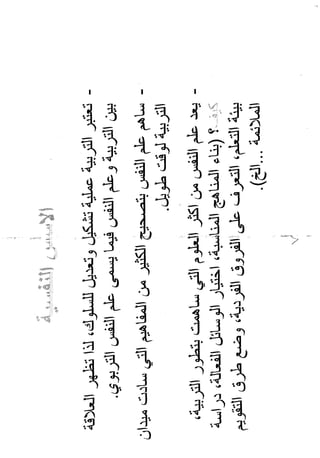 الاسس النفسية
- تعتبر التربية عملية تشكيل وتعديل للسلوك، لذا تظهر العلاقة
بين التربية و علم النفس فيما يسمى علم النفس التربوي.
- ساهم علم النفس بتصحيح الكثير من المفاهيم التي سادت ميدان
التربية لوقت طويل.
- يعد علم النفس من اكثر العلوم التي ساهمت بتطور التربية،
كيف؟ (بناء المناهج المناسبة، اختيار الوسائل الفعالة، دراسة
بيئة التعلم، التعرف على الفروق الفردية، وضع طرق التقويم
الملائمة ...الخ).